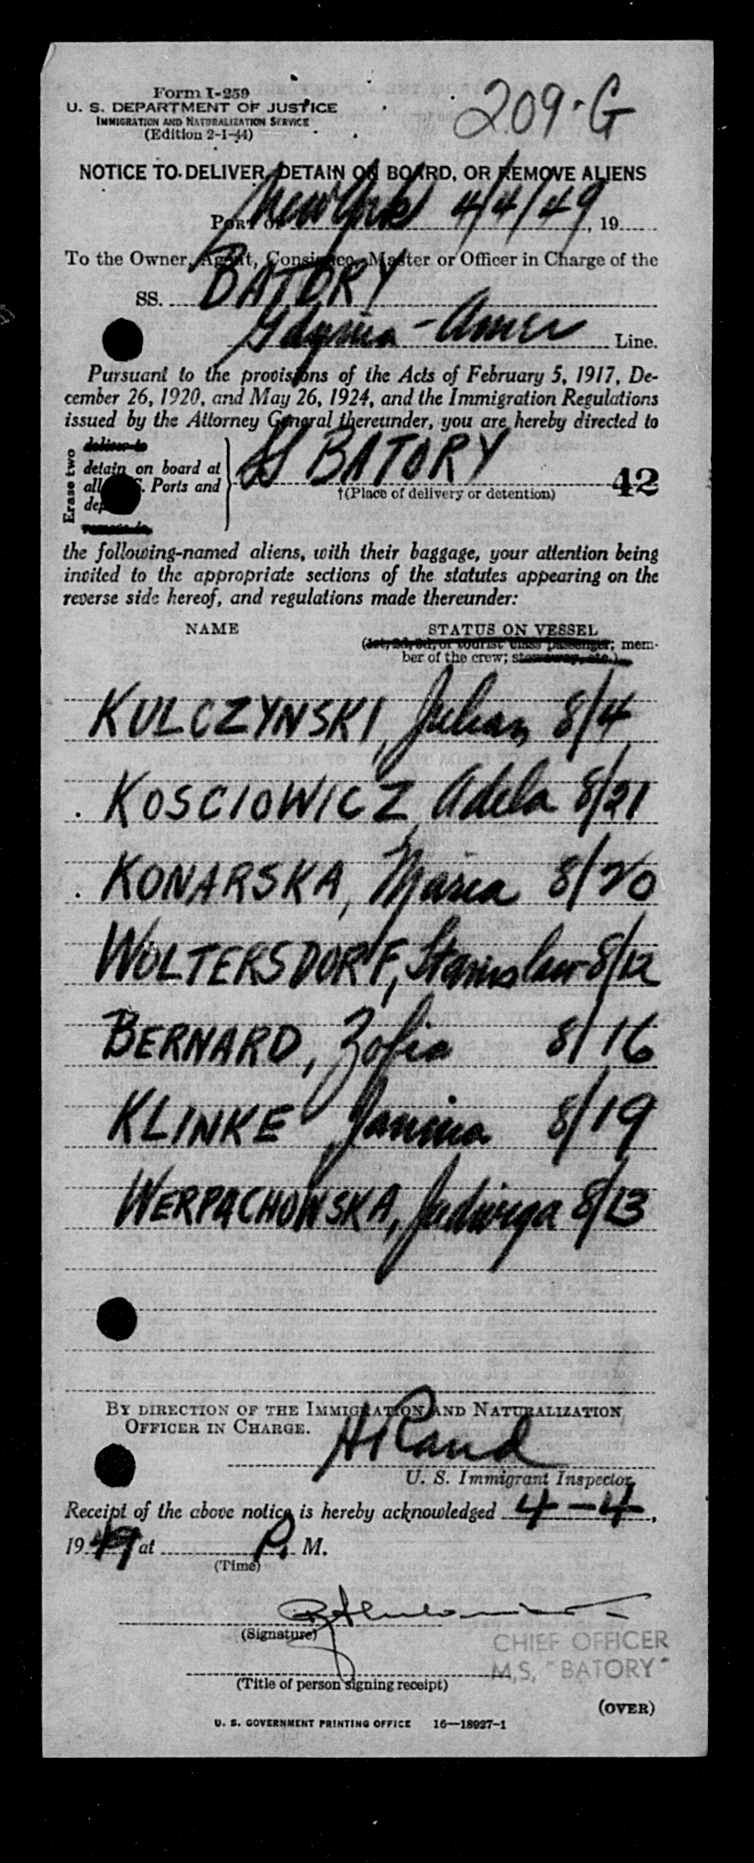 Form I-259
209-G
U. S. DEPARTMENT OF JUSTICE
IMMIGRATION AND NATURALIZATION SERVICE
(Edition 2-1-44)
NOTICE TO DELIVER, DETAIN ON BOARD, OR REMOVE ALIENS
PORT OF New York 4/4/49, 19
To the Owner, Agent, Consignee, Master or Officer in Charge of the
SS. BATORY
Gdynia-Amer Line.
Pursuant to the provisions of the Acts of February 5, 1917, De-
cember 26, 1920, and May 26, 1924, and the Immigration Regulations
issued by the Attorney General thereunder, you are hereby directed to
Erase two
deliver to
detain on board at
all U. S. Ports and
SS BATORY
†(Place of delivery or detention)
42
remove to
the following-named aliens, with their baggage, your attention being
invited to the appropriate sections of the statutes appearing on the
reverse side hereof, and regulations made thereunder:
NAME STATUS ON VESSEL
(1st, 2d, 3d, or tourist class passenger; mem-
ber of the crew; stowaway, etc.)
KULCZYNSKI, Julian 8/4
KOSCIOWICZ Adela 8/21
KONARSKA, Maria 8/20
WOLTERSDORF, Stanislaw 8/12
BERNARD, Zofia 8/16
KLINKE Janina 8/19
WERPACHOWSKA, Jadwiga 8/13
BY DIRECTION OF THE IMMIGRATION AND NATURALIZATION
OFFICER IN CHARGE.
H Rand
U. S. Immigrant Inspector
Receipt of the above notice is hereby acknowledged 4-4,
1949 at P. M.
(Time)
(Signature)
CHIEF OFFICER
M,S, "BATORY"
(Title of person signing receipt)
(OVER)
U. S. GOVERNMENT PRINTING OFFICE 16—18927-1